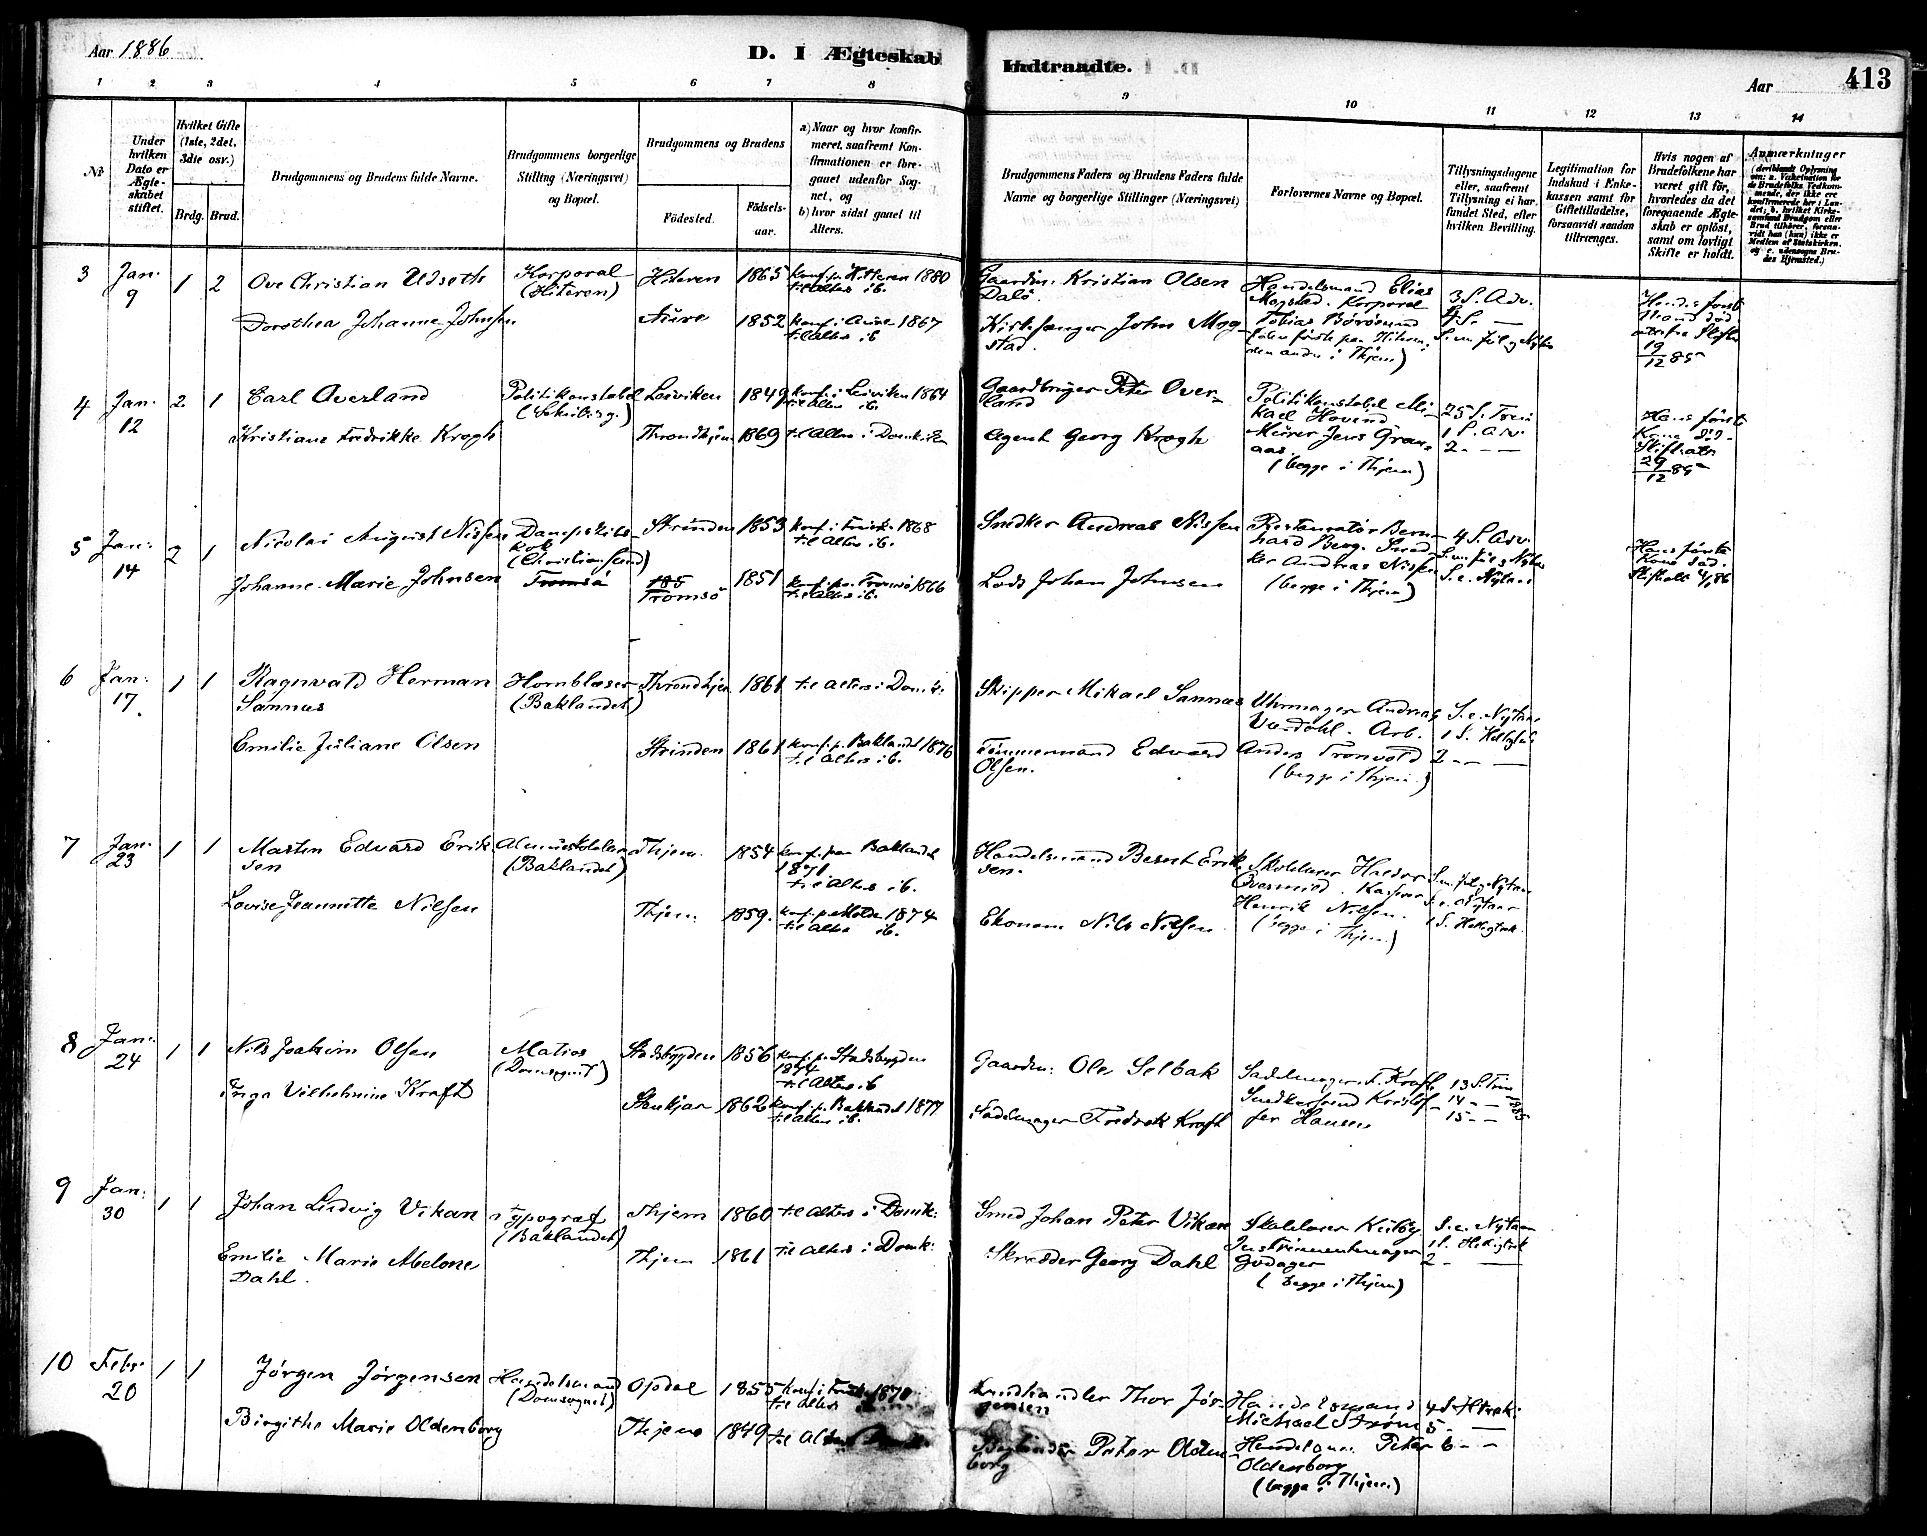 Aar 1886
D. I Ægteskab Indtraadte.
Aar 413
1 2 3 4 5 6 7 8 9 10 11 12 13 14
No
Under hvilken Dato er Ægteskabet stiftet.
Hvilket Gifte (1ste, 2det, 3die osv.)
Brdg. Brud.
Brudgommens og Brudens fulde Navne.
Brudgommens borgerlige Stilling (Næringsvei) og Bopæl.
Brudgommens og Brudens
Födested.
Födsels-aar.
a) Naar og hvor konfirmeret, saafremt Konfirmationen er foregaaet udenfor Sognet, og
b) hvor sidst gaaet til Alters.
Brudgommens Faders og Brudens Faders fulde Navne og borgerlige Stillinger (Næringsvei)
Forlovernes Navne og Bopæl.
Tillysningsdagene eller, saafremt Tillysning ei har fundet Sted, efter hvilken Bevilling.
Legitimation for Indskud i Enkekassen samt for Giftetilladelse, forsaavidt saadan tiltrænges.
Hvis nogen af Brudefolkene har været gift för, hvorledes da det foregaaende Ægteskab er oplöst, samt om lovligt Skifte er holdt.
Anmærkninger
3 Jan. 9 1 2
Ove Christian Udseth
Korporal (Hiteren)
Hiteren 1865
konf. p. Hitteren 1880
til Alters ib.
Gaardm. Kristian Olsen Dalö.
Handelsmand Elias Mogstad. Korporal Tobias Börösund
3 S. Adv.
4 S. —
Dorothea Johanne Johnsen
Aure 1852
konf. i Aure 1867
til Alters ib.
Kirkesanger John Mogstad.
19/12 85
4 Jan. 12 2 1
Carl Overland
Politikonstabel
Leiviken 1849
konf. i Leiviken 1864
til Alters ib.
Gaardbruger Peter Overland
Politikonstabel Mikael Hovind
Murer Jens Granaas.
(begge i Thjem)
25 S. Trin
1 S. Adv.
2 - —
Kristiane Fredrikke Krogh
Throndhjem 1869
til Alters i Domkirken
Agent Georg Krogh
Hans förste Kone död.
29/12 85
5 Jan. 14 2 1
Nicolai August Nissen
Dampskibskok (Christianssund)
Strinden 1853
til Alters ib.
Snedker Andreas Nissen
Restauratör Bernhard Berg. Snedker Andreas Nissen
(begge i Thjem)
4 S. Adv.
S. m. Jul og Nytaar
S. e. Nytaar
Johanne Marie Johnsen
Tromsö
Tromsö 1851
konf. p. Tromsö 1866
til Alters ib.
Lods Johan Johnsen
Hans förste Kone död.
6 Jan. 17 1 1
Ragnvald Herman Sannæs
Hornblæser (Baklandet)
Throndhjem 1861
til Alters i Domk.
Skipper Mikael Sannæs
Uhrmager Andreas Vordahl. Arb. Anders Tronvold
(begge i Thjem.)
S. e. Nytaar
1 S. Helligtrek
2 - —
Emilie Juliane Olsen
Strinden 1861
konf. p. Baklandet 1876
til Alters ib.
Tömmermand Edvard Olsen.
7 Jan. 23 1 1
Martin Edvard Eriksen
(Baklandet)
Thjem. 1854
konf. paa Baklandet 1871
til Alters ib.
Handelsmand Bernt Eriksen.
Skolelærer Haldor
Henrik Nilsen.
(begge i Thjem)
S. m. Jul og Nytaar
S. e. Nytaar
1 S. Helligtrek.
Lovise Jeannette Nilsen
Thjem. 1859.
konf. p. Molde 1874
til Alters ib.
Ekonom Nils Nilsen
8 Jan. 24 1 1
Nils Joakim Olsen
Matros (Domsognet)
Stadsbygden 1856
konf. p. Stadsbygden 1874
til Alters ib.
Gaardm: Ole Selbak
Sadelmager F. Kraft.
Snedkersvend Kristoffer Hansen
13 S. Trin
14 - —
15 - —
1885
Inga Vilhelmine Kraft
Stenkjær 1862
konf. p. Baklandet 1877
til Alters ib.
Sadelmager Fredrik Kraft
9 Jan: 30 1 1
Johan Ludvig Vikan
Typograf (Baklandet)
Thjem 1860
til Alters i Domk:
Smed Johan Peter Vikan
Skolelærer
Instrumentmager Godager
(begge i Thjem)
S. e. Nytaar
1 S. Helligtrek
2 - —
Emilie Marie Abelone Dahl.
Thjem 1861
til Alters i Domk:
Skrædder Georg Dahl
10 Febr. 20 1 1
Jörgen Jörgensen
Handelsmand (Domsognet)
Opdal 1855
til Alters
Thor Jörgensen
Handelsmand Michael Ström
Handelsm. Peter Oldenborg
(begge i Thjem)
4 S. H.trek:
5 - —
6 - —
Birgithe Marie Oldenborg
Thjem 1849
til Alters
Peter Oldenborg